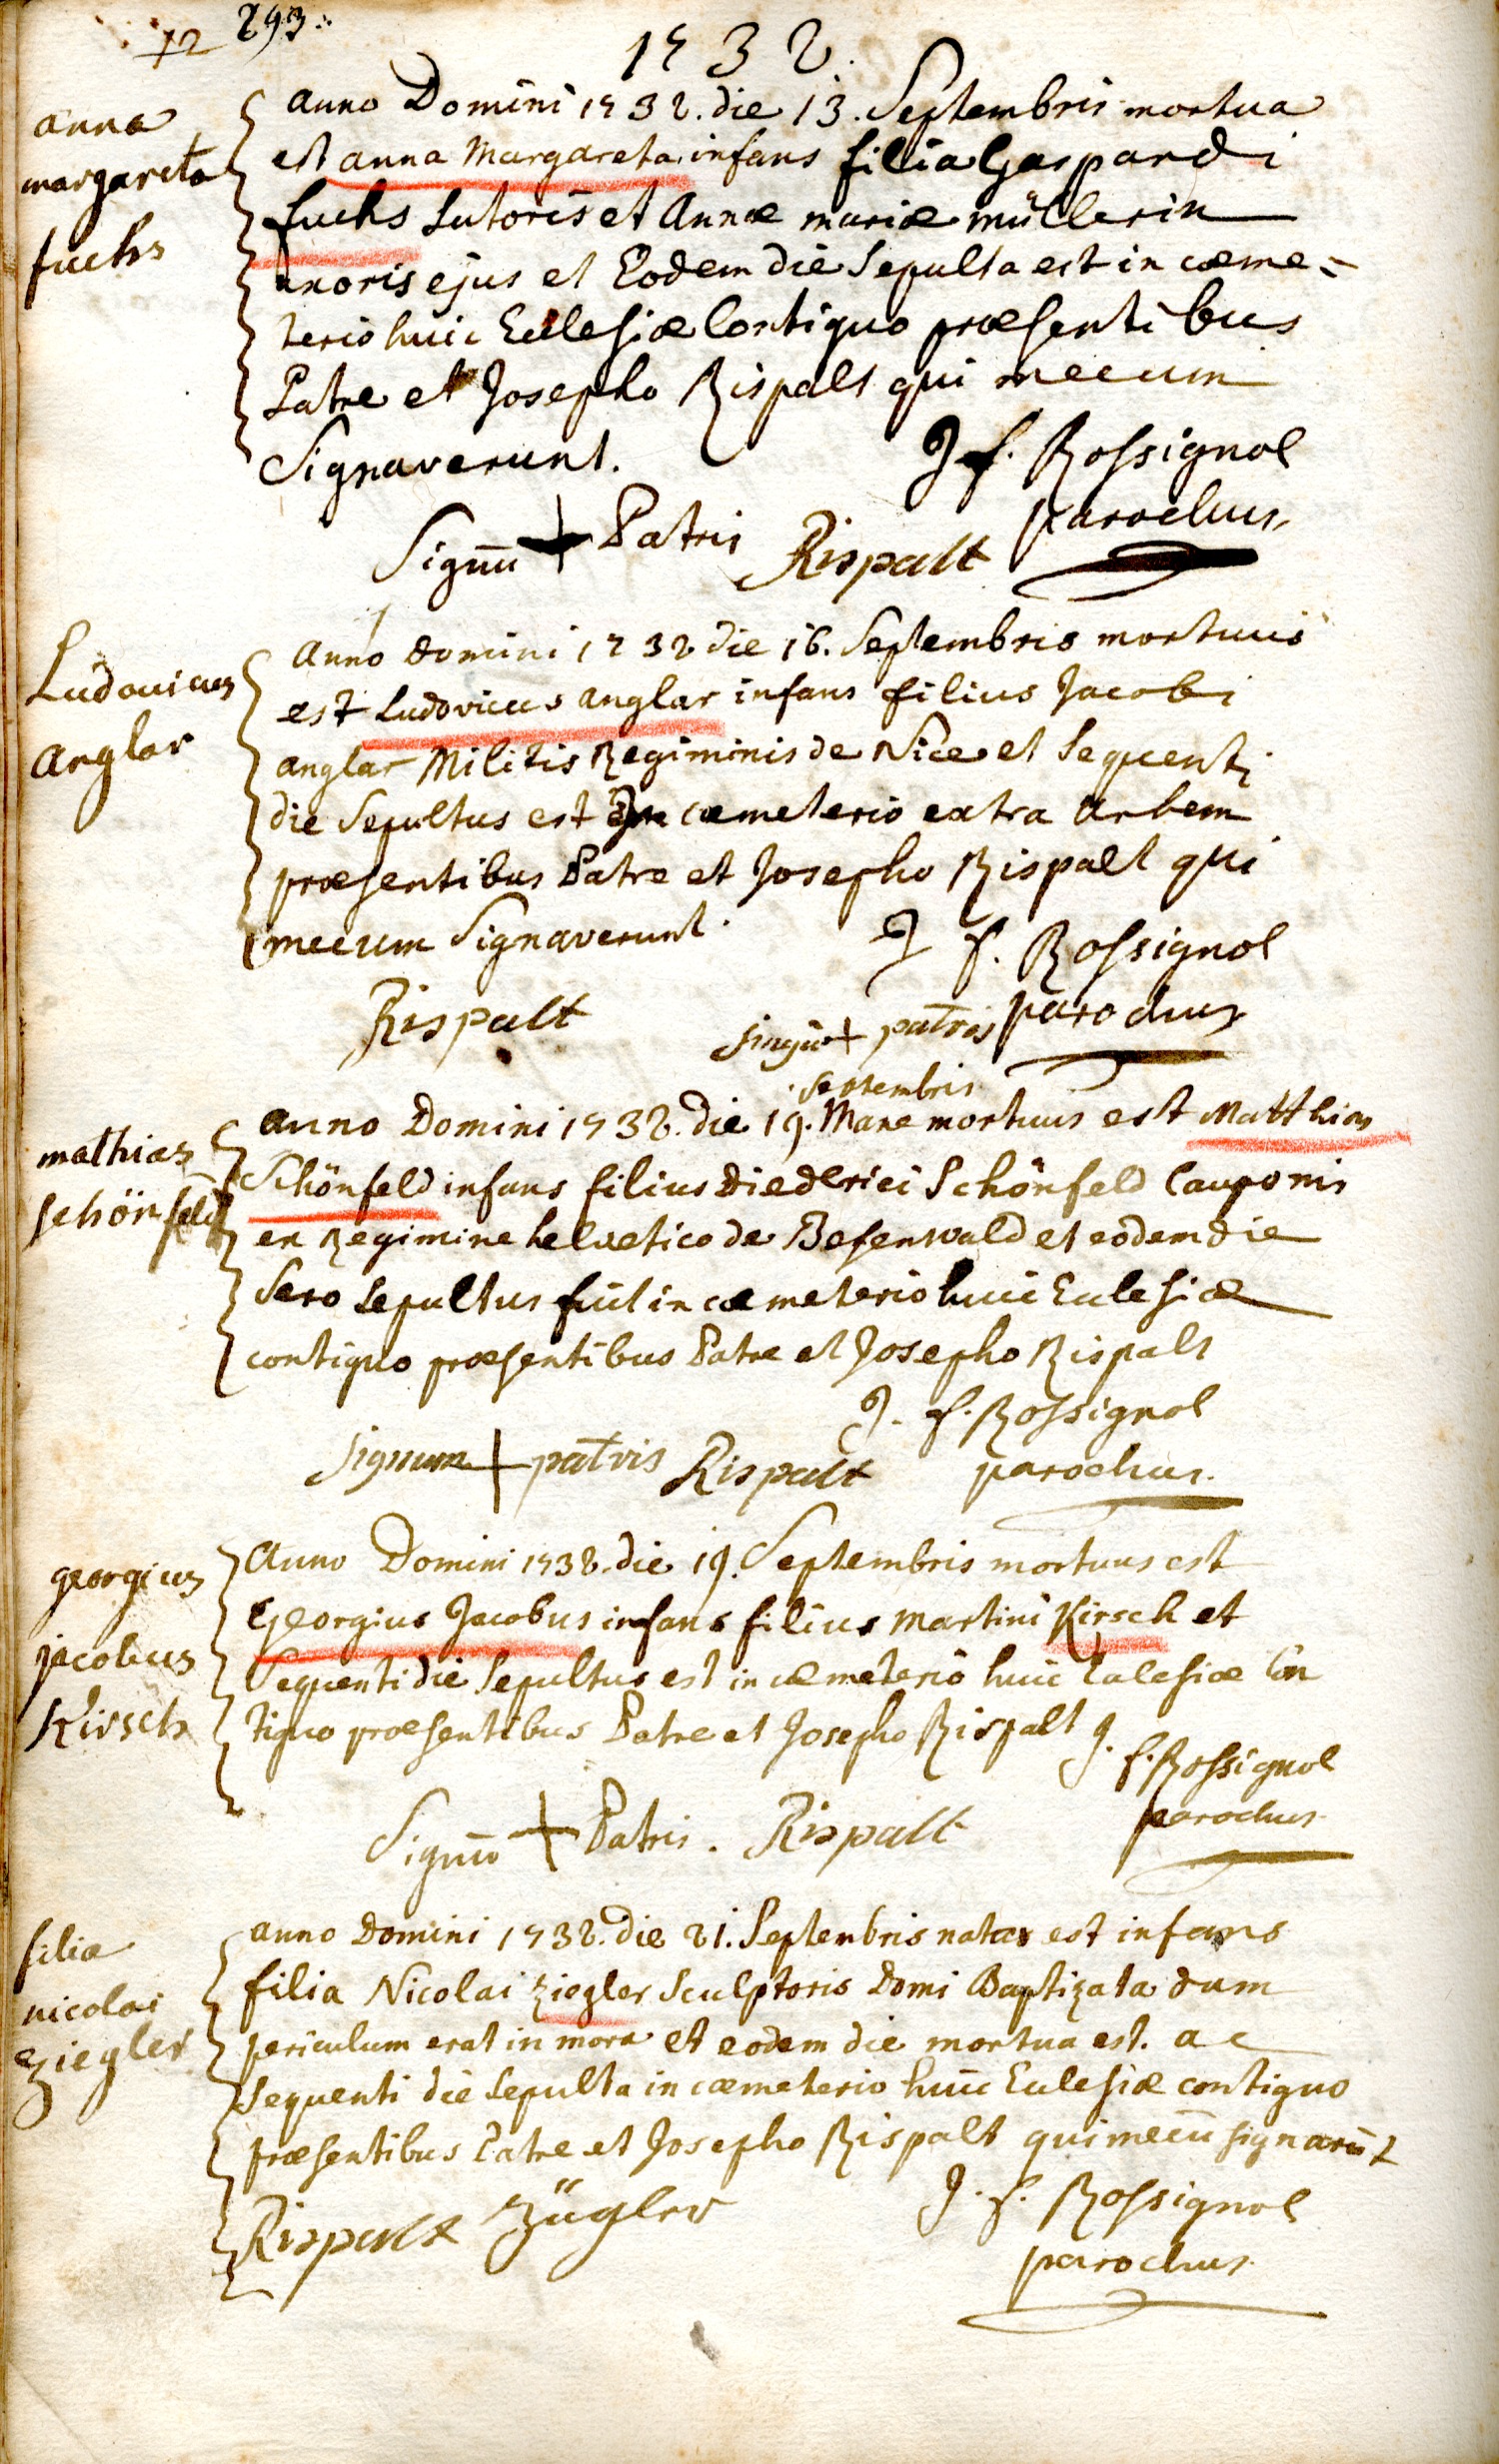 12 293.
1732.
anna
margareta
fuchs
Anno Domini 1732. die 13. Septembris mortua
est anna Margareta infans filia Gaspardi
fuchs Sutoris et Annæ mariæ müllerin
uxoris ejus et Eodem die Sepulta est in cæme=
terio huic Ecclesiæ Contiguo præsentibus
Patre et Josepho Rispalt qui mecum
Signaverunt.
J f. Rossignol
parochus
Signū + Patris Rispalt
Ludovicus
Anglar
Anno Domini 1732 die 16. Septembris mortuus
est Ludovicus Anglar infans filius Jacobi
anglar Militis Regiminis de Nice et Sequenti
die Sepultus est in cæmeterio extra Urbem
præsentibus Patre et Josepho Rispalt qui
mecum Signaverunt.
J f. Rossignol
parochus
Rispalt
signū + patris
Septembris
mathias
schönfeld
anno Domini 1732. die 19. Mane mortuus est Matthias
Schönfeld infans filius Diederici Schönfeld Cauponis
ex Regimine helvetico de Besenwald et eodem die
Sero Sepultus fuit in cæmeterio huic Ecclesiæ
contiguo præsentibus Patre et Josepho Rispalt
J. f. Rossignol
parochus.
signum + patris Rispalt
georgius
jacobus
Kirsch
Anno Domini 1732. die 19. Septembris mortuus est
Georgius Jacobus infans filius Martini Kirsch et
Sequenti die Sepultus est in cæmeterio huic Ecclesiæ Con
tiguo præsentibus Patre et Josepho Rispalt J.
f. Rossignol
parochus
Signū + Patris. Rispalt
filia
nicolai
ziegler
anno Domini 1732. die 21. Septenbris nata est infans
filia Nicolai ziegler Sculptoris Domi Baptizata dum
periculum erat in mora et eodem die mortua est. ac
Sequenti die Sepulta in cæmeterio huic Eclesiæ contiguo
præsentibus Patre et Josepho Rispalt qui mecū signarūt
J. f. Rossignol
parochus
Rispalt Zügler